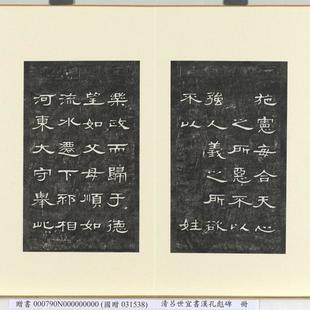 施憲每合天心
之所惡不以
強人義之所欲
不以 姓
樂政而歸于德
望如父母順如
流水遷下邳相
河東大守舉此
贈書 000790N000000000 (國贈 031538) 清呂世宜書漢孔彪碑 冊